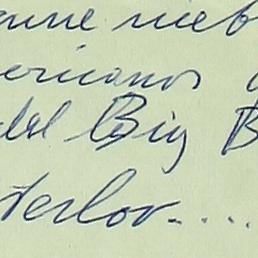 nieb
ericanos
del Big B
terlov....